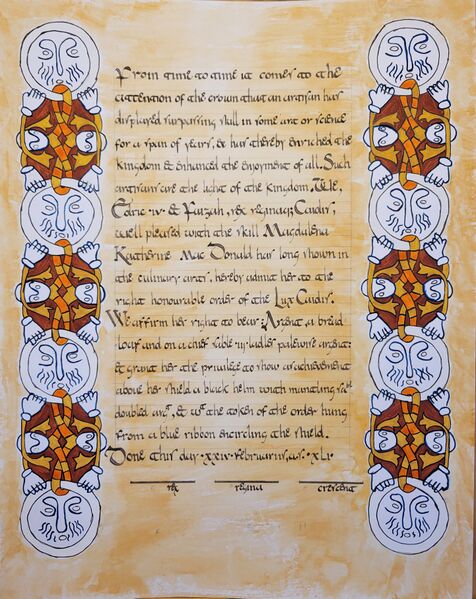 From time to time it comes to the
attention of the crown that an artisan has
displayed surpassing skill in some art or science
for a span of years, & has thereby enriched the
kingdom & enhanced the enjoyment of all. Such
artisans are the light of the kingdom. We,
Edric iv & Faizah, rex reginaq; Caidis,
well pleased with the skill Magdalena
Katherine Mac Donald has long shown in
the culinary arts, hereby admit her to the
right honourable order of the Lux Caidis.
We affirm her right to bear: Argent, a bread
loaf and on a chief sable iii ladles palewise argent;
& grant her the privilege to show as achievement
above her shield a black helm with mantling
doubled & the token of the order hung
from a blue ribbon encircling the shield.
Done this day xxiv februarius, a.s. xli
rex regina crescent